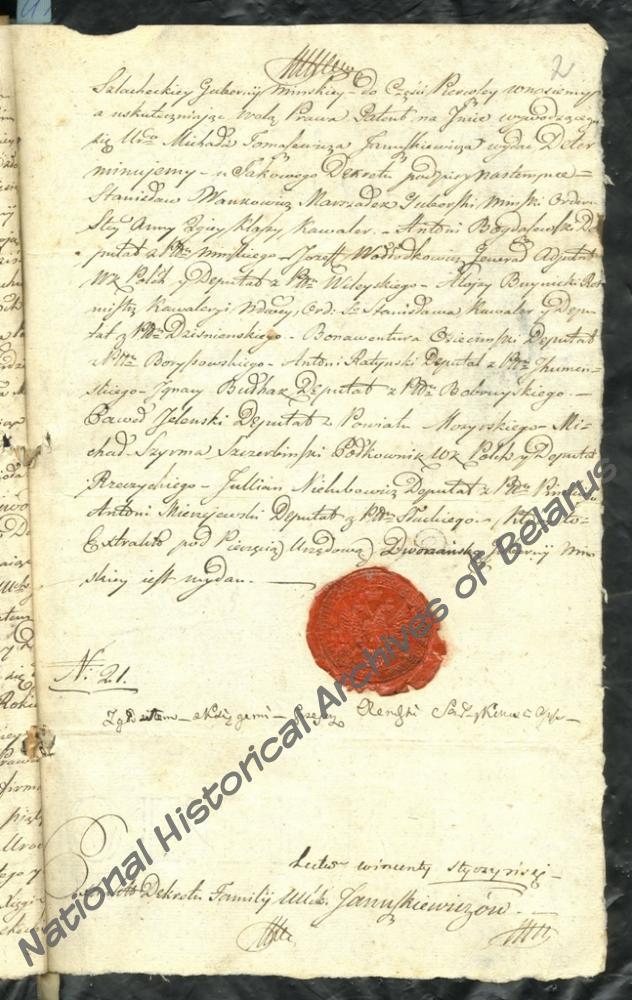 2
Szlacheckiey Gubernij Minskiey do Części Pierwszey wnosiemy,
a uskuteczniając wolą Prawa Patent na Jmie wywodzącego
się Urdo Michała Tomaszewicza Januszkiewicza wydać Deter
minujemy – u takowego Dekretu podpisy następne =
Stanisław Wankowicz Marszałek Guberski Minski Orderu
Stey Anny 2giey Klassy Kawaler. – Antoni Bogdaszewski De
putat z Pttu Minskiego – Jozeff Wołodkowicz Jenerał Adjutant
WX Polch y Deputat z Pttu Wileyskiego – Aloizy Buynicki Rot
mistrz Kawaleryi Ndowey, Ord: So Stanisława Kawaler y Depu-
tat z Pttu Dzisnienskiego – Bonawentura Deputat
z Pttu Borysowskiego – Antoni Ratynski Deputat z Pttu Jhumen-
skiego – Jgnacy Bułhak Deputat z Pttu Bobruyskiego. –
Paweł Jelenski Deputat z Powiatu Mozyrskiego – Mi-
chał Szyrma Szczerbinski Półkownik WX Polch y Deputat
Rzeczyckiego – Jullian Nielubowicz Deputat z Pttu Pinsko
Antoni Mierzejewski Deputat z Pttu Słuckiego. – Ktory to
Extrakt pod Pieczęcią Urzędową Dworzańską Gubernij Min-
skiey iest wydan. –
No 21.
Zgodziłem z Księgami
Lectum Wincenty
Dekretu Familij Januszkiewiczów. –
National Historical Archives of Belarus